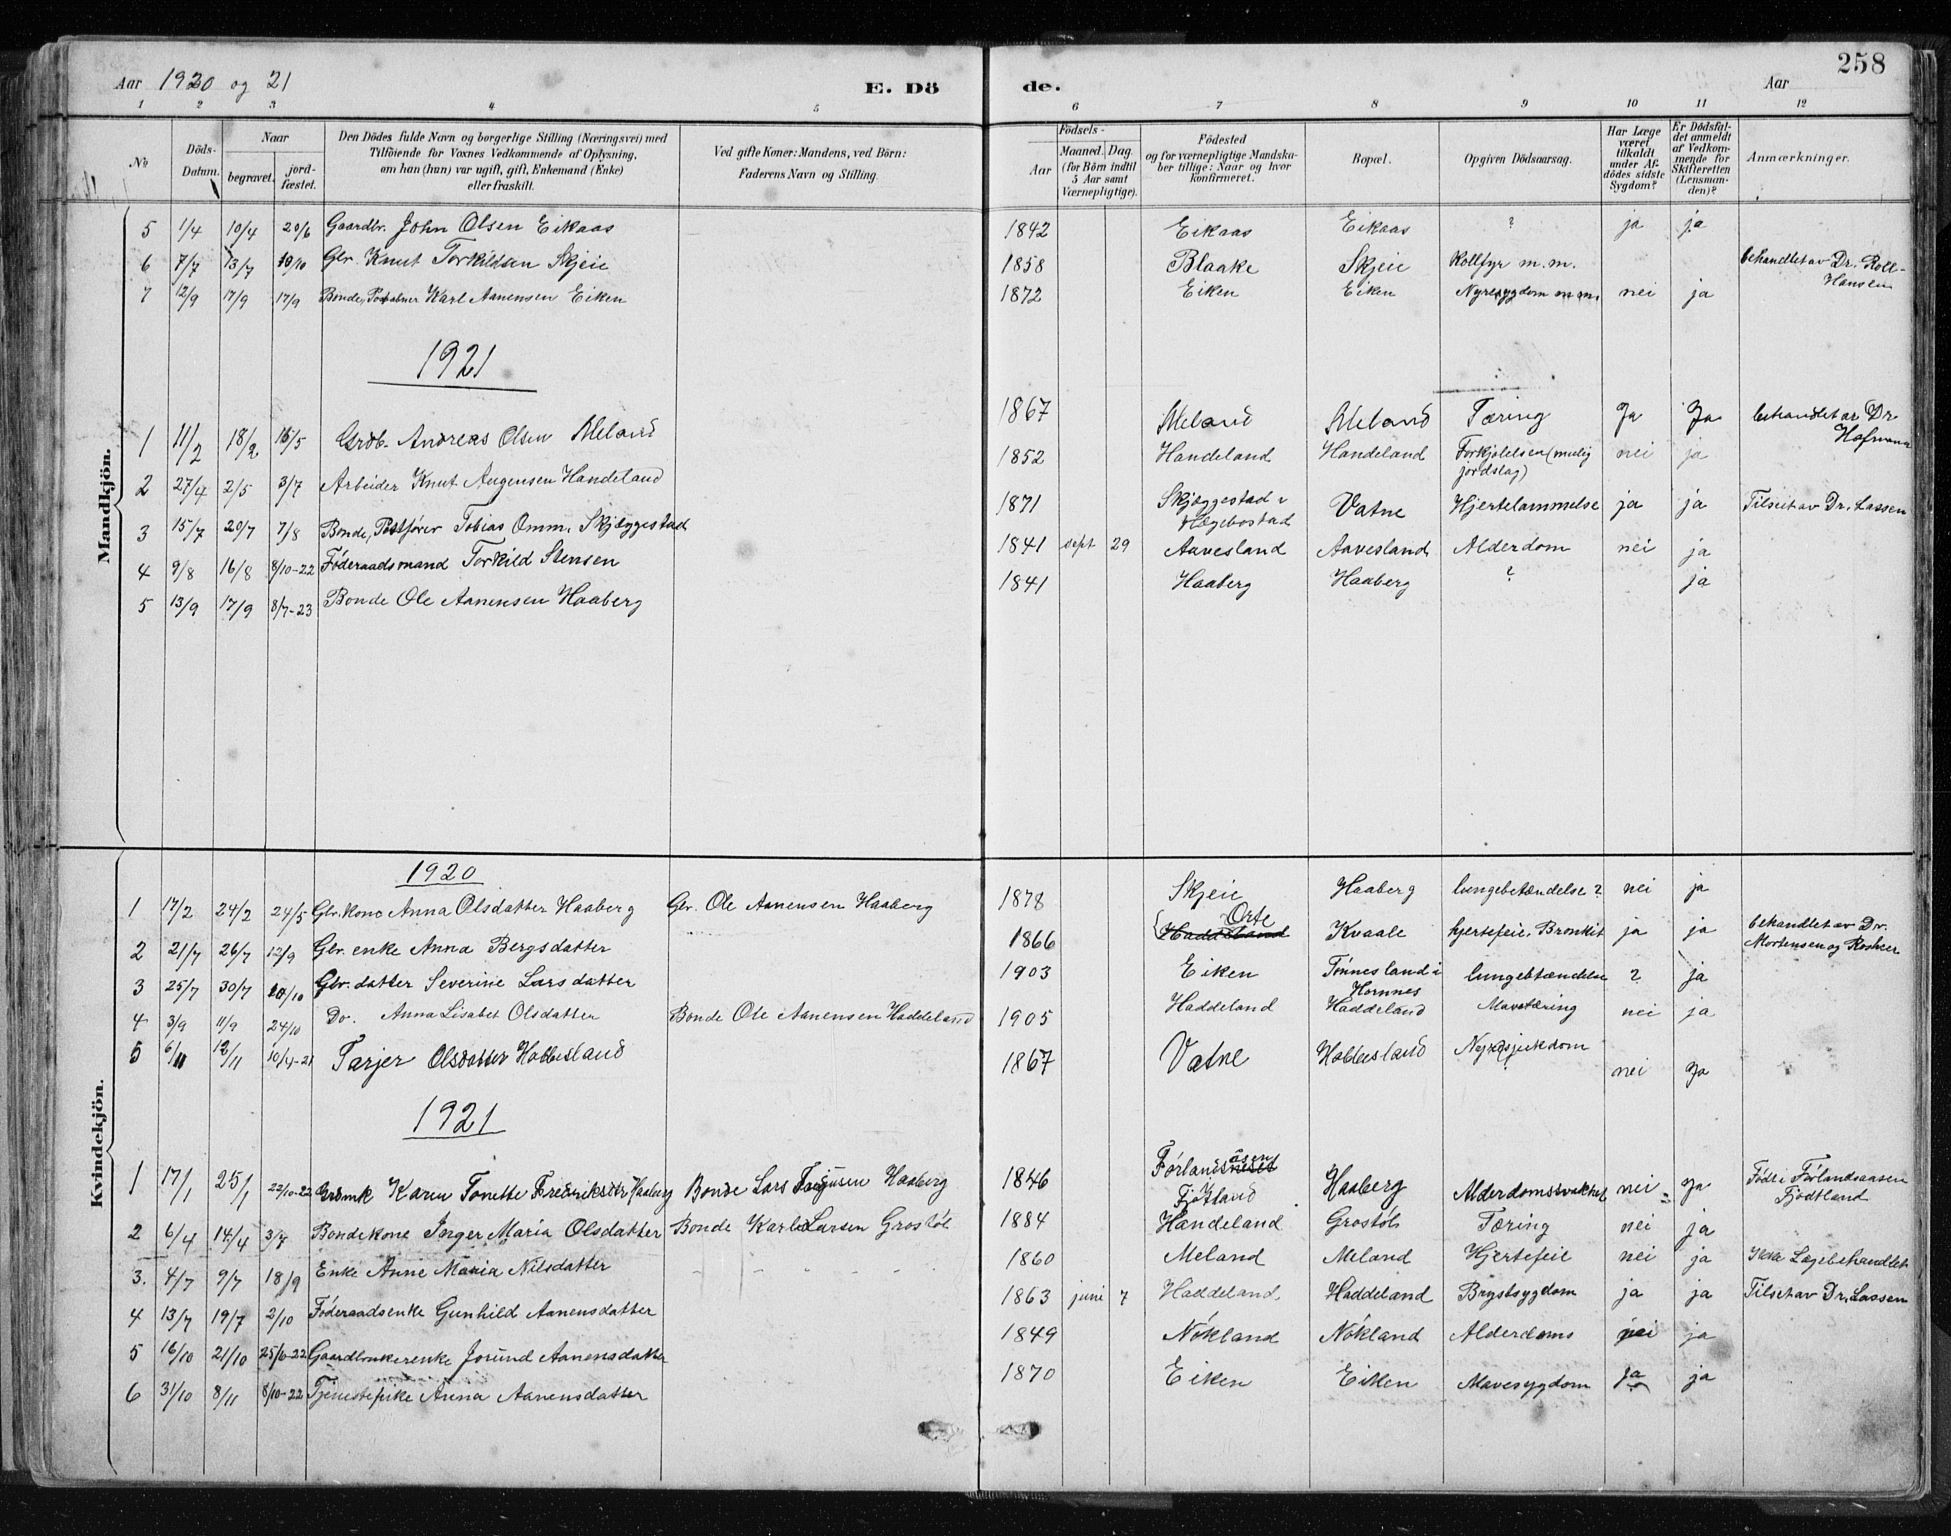 258
Aar 1920 og 21 E. Dö de. Aar
1 2 3 4 5 6 7 8 9 10 11 12
No
Döds-Datum.
Naar
begravet. jord-fæstet.
Den Dödes fulde Navn og borgerlige Stilling (Næringsvei) med
Tilföiende for Voxnes Vedkommende af Oplysning,
om han (hun) var ugift, gift, Enkemand (Enke)
eller fraskilt.
Ved gifte Koner: Mandens, ved Börn:
Faderens Navn og Stilling.
Födsels-
Aar
Maaned. Dag.
(for Börn indtil
5 Aar samt
Værnepligtige).
Födested
og for værnepligtige Mandska-
ber tillige: Naar og hvor
konfirmeret.
Bopæl.
Opgiven Dödsaarsag.
Har Læge
været
tilkaldt
under Af-
dödes sidste
Sygdom?
Er Dödsfal-
det anmeldt
af Vedkom-
mende for
Skifteretten
(Lensman-
den)?
Anmærkninger.
Mandkjön.
5 1/4 10/4 20/6 Gaardbr. John Olsen Eikaas 1842 Eikaas Eikaas ? ja ja
6 7/7 13/7 10/10 Gbr. Knut Torkildsen Skjeie 1858 Blaake Skjeie Koldfyr m.m. behandlet av Dr. Roll-
Hansen
7 12/9 17/9 17/9 Bonde, Karl Aanensen Eiken 1872 Eiken Eiken Nyresygdom m.m. nei ja
1921
1 11/2 18/2 16/5 Grdb. Andreas Olsen Meland 1867 Meland Meland Tæring Ja Ja behandlet av Dr
Hofmann
2 27/4 2/5 3/7 Arbeider Knut Augensen Handeland 1852 Handeland Handeland Forkjölelsen (mulig
jordslag) nei ja
3 15/7 20/7 7/8 Bonde, Postförer Tobias Omm. Skjæggestad 1871 Skjæggestad i
Hægebostad Vatne Hjertelammelse ja ja Tilset av Dr. Lassen
4 9/8 16/8 8/10-22 Föderaadsmand Torkild Stensen 1841 sept 29 Aavesland Aavesland Alderdom nei ja
5 13/9 17/9 8/7-23 Bonde Ole Aanensen Haaberg 1841 Haaberg Haaberg ? ja
Kvindekjön.
1920
1 17/2 24/2 24/5 Gbr. kone Anna Olsdatter Haaberg Gbr. Ole Aanensen Haaberg 1878 Skjeie Haaberg lungebetændelse? nei ja
2 21/7 26/7 12/9 Gbr. enke Anna Bergsdatter 1866 Haddeland Orte Kvaale hjertefeil, Bronkit ja ja behandlet av Dr.
Mortensen og
3 25/7 30/7 10/10 Gbr. datter Severine Larsdatter 1903 Eiken Tönnesland i
Hornnes lungebtændelse ? ja
4 3/9 11/9 24/10 Do. Anna Lisabet Olsdatter Bonde Ole Aanensen Haddeland 1905 Haddeland Haddeland Mavetæring nei ja
5 6/11 12/11 10/4-21 Tarjer Olsdatter Hobbesland 1867 Vatne Hobbesland Nyresjukdom nei Ja
1921
1 17/1 25/1 22/10-22 Karen Tonette Fredriksdtr Haaberg Bonde Lars Haaberg 1846 Förlandsneset åsen
Fjotland Haaberg Alderdomsvakhet nei Ja Födt i Förlandsaasen
Fjotland
2 6/4 14/4 3/7 Bondekone Inger Maria Olsdatter Bonde Karl Larsen Grostöl 1884 Handeland Grostöl Tæring nei ja
3. 4/7 9/7 18/9 Enke Anne Maria Nilsdatter - - - - 1860 Meland Meland Hjertefeil nei ja Ikke Lægebehandlet
4 13/7 19/7 2/10 Föderaadsenke Gunhild Aanensdatter 1863 juni 7 Haddeland Haddeland Brystsygdom ja ja Tilset av Dr. Lassen
5 16/10 21/10 25/6-22 Gaardbrukerenke Jorund Aanensdatter 1849 Nökland Nökland Alderdoms nei ja
6 31/10 8/11 8/10-22 Tjenestepike Anna Aanensdatter 1870 Eiken Eiken Mavesygdom ja ja